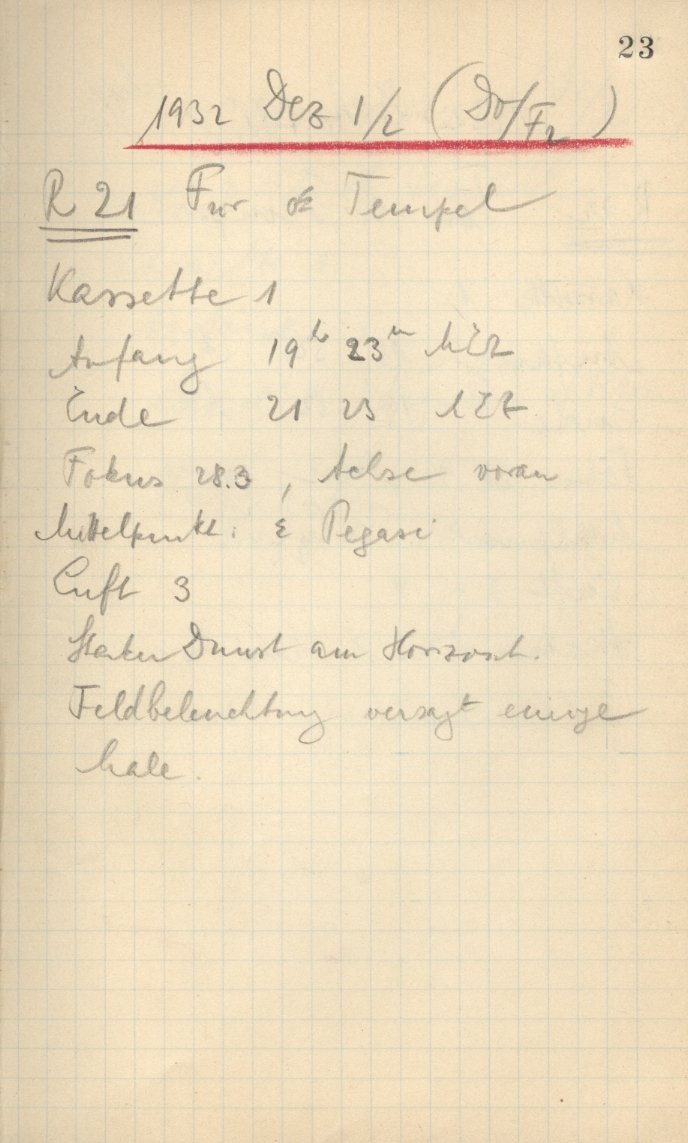 23
1932 Dez 1/2 (Do/Fr)
R 21 Für Tempel
Kassette 1
Anfang 19h 23m MEZ
Ende 21 23 MEZ
Fokus 28.3, Achse voran
Mittelpunkt: ε Pegasi
Luft 3
Starker Dunst am Horizont.
Feldbeleuchtung versagt einige
Male.